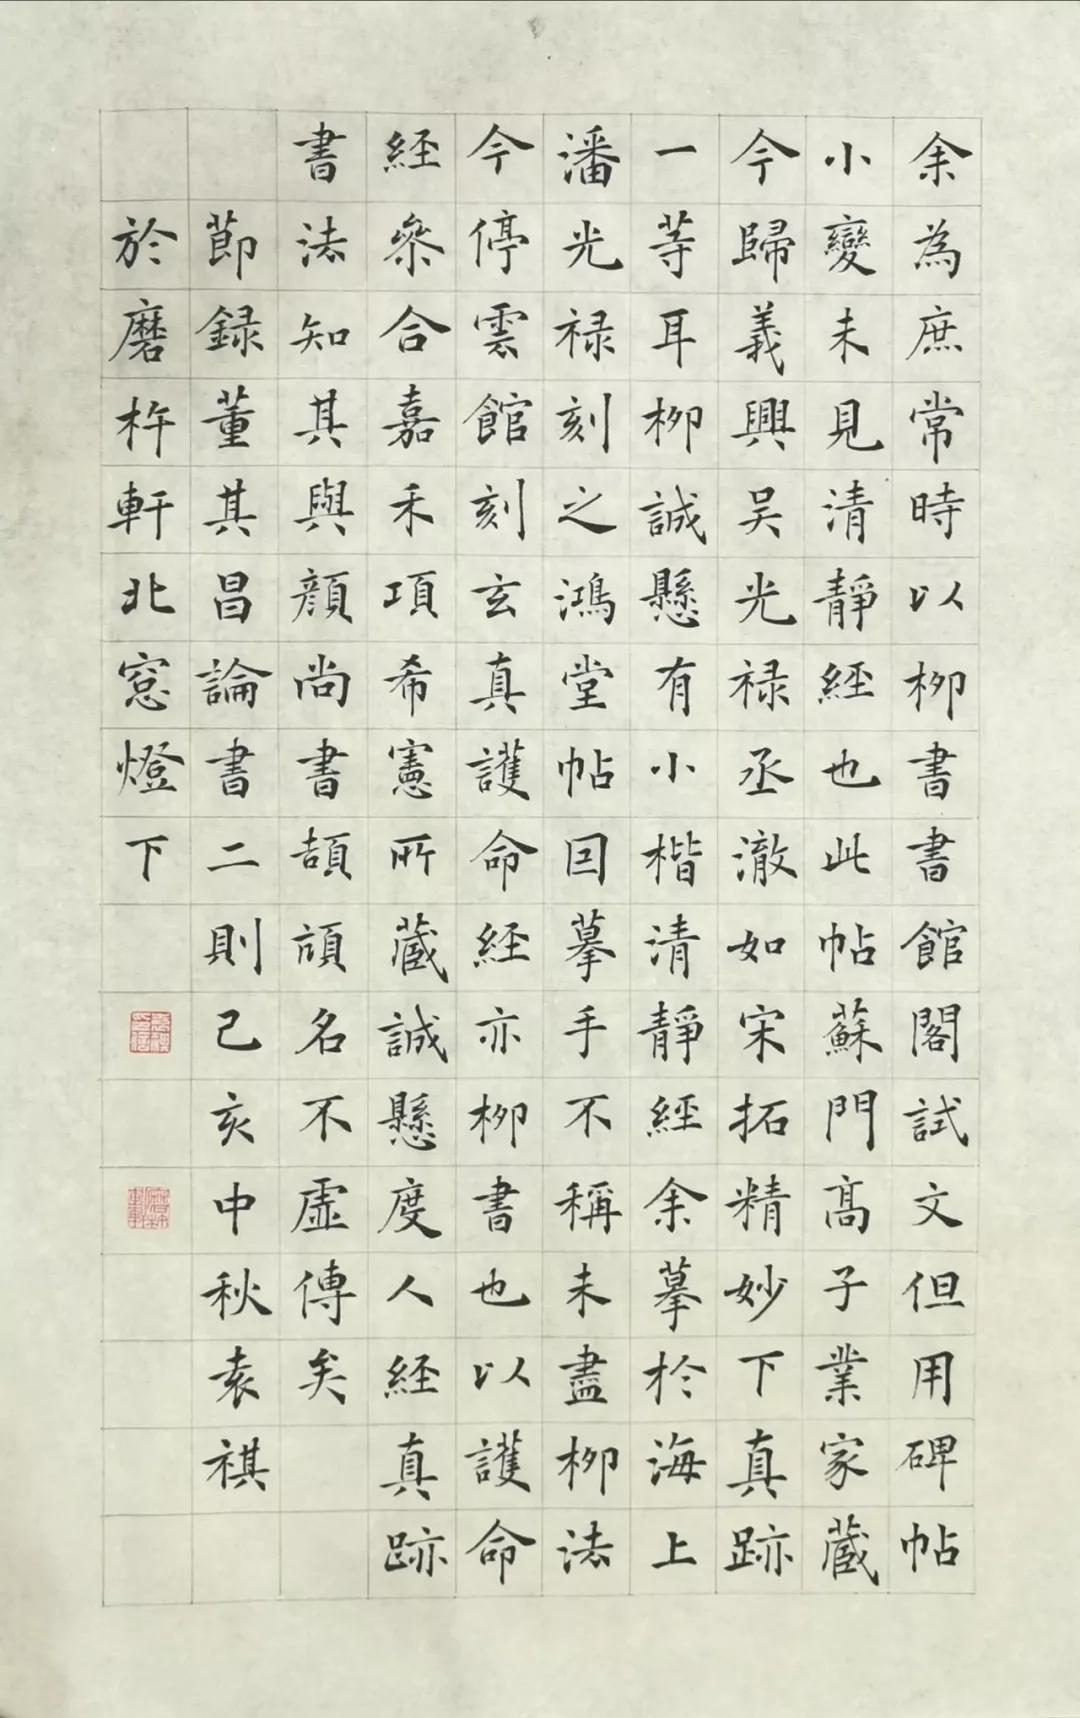 余為庶常時以柳書書館閣試文但用碑帖
小變未見清靜經也此帖蘇門高子業家藏
今歸義興吴光禄丞澈如宋拓精妙下真跡
一等耳柳誠懸有小楷清靜經余摹於海上
潘光禄刻之鴻堂帖囙摹手不稱未盡柳法
今停雲館刻玄真護命經亦柳書也以護命
經叅合嘉禾項希憲所藏誠懸度人經真跡
書法知其與顔尚書頡頏名不虛傳矣
節録董其昌論書二則己亥中秋袁祺
於磨杵軒北窓燈下